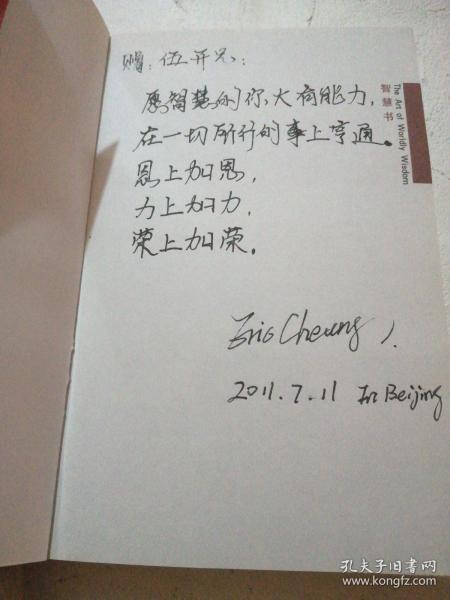 赠：伍开兄：
愿智慧的你，大有能力，
在一切所行的事上亨通。
恩上加恩，
力上加力，
荣上加荣。
Eric Cheung
2011.7.11 In Beijing
智慧书
The Art of Worldly Wisdom
孔夫子旧书网
www.kongfz.com